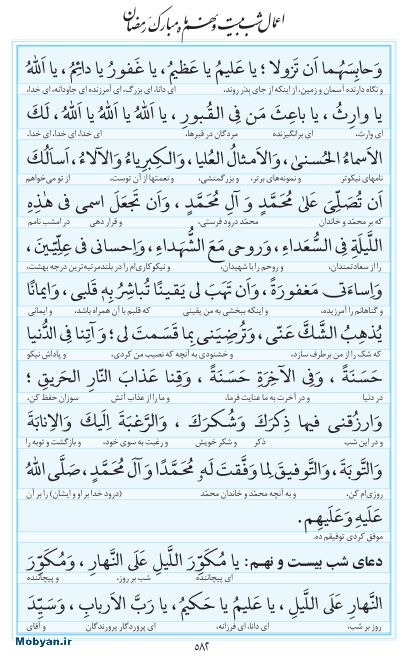 اعمال شب بیست و نهم ماه مبارک رمضان
وَحابِسَهُما اَن تَزولا ؛ یا عَلیمُ یا عَظیمُ، یا غَفورُ یا دائِمُ، یا اَللهُ
و نگاه دارنده آسمان و زمین، از اینکه از جای بدر روند، ای دانا، ای بزرگ، ای آمرزنده ای جاودانه، ای خدا،
یا وارِثُ، یا باعِثَ مَن فِی القُبورِ، یا اَللهُ یا اَللهُ یا اَللهُ، لَکَ
ای وارث، ای برانگیزنده مردگان در قبرها، ای خدا، ای خدا، ای خدا،
الاَسماءُ الحُسنیٰ، وَالاَمثالُ العُلیا، وَالکِبرِیاءُ وَالآلاءُ، اَسأَلُکَ
نامهای نیکوتر و نمونه‌های برتر، و بزرگمنشی، و نعمتها از آن توست، از تو می‌خواهم
اَن تُصَلِّیَ عَلیٰ مُحَمَّدٍ وَ آلِ مُحَمَّدٍ، وَاَن تَجعَلَ اسمی فی هٰذِهِ
که بر محمّد و خاندان محمّد درود فرستی، و قرار دهی در امشب نامم
اللَّیلَةِ فِی السُّعَداءِ، وَروحی مَعَ الشُّهَداءِ، وَاِحسانی فی عِلِّیّینَ،
را از سعادتمندان، و روحم را با شهیدان، و نیکوکاری‌ام را در بلندمرتبه‌ترین درجه بهشت،
وَاِساءَتی مَغفورَةً، وَاَن تَهَبَ لی یَقینًا تُباشِرُ بِهٖ قَلبی، وَایمانًا
و گناهانم را آمرزیده، و اینکه ببخشی به من یقینی که قلبم با آن همراه باشد، و ایمانی
یُذهِبُ الشَّکَّ عَنّی، وَتُرضِیَنی بِما قَسَمتَ لی؛ وَآتِنا فِی الدُّنیا
که شک را از من برطرف سازد، و خشنودی به آنچه که نصیب من کردی، و پاداش نیکو
حَسَنَةً، وَفِی الآخِرَةِ حَسَنَةً، وَقِنا عَذابَ النّارِ الحَریقِ؛
در دنیا و در آخرت به ما عنایت فرما، و ما را از عذاب آتش سوزان حفظ کن،
وَارزُقنی فیها ذِکرَکَ وَشُکرَکَ، وَالرَّغبَةَ اِلَیکَ وَالاِنابَةَ
و در این شب ذکر و شکر خویش و رغبت به سوی خود، و بازگشت و توبه را
وَالتَّوبَةَ، وَالتَّوفیقَ لِما وَفَّقتَ لَهٗ مُحَمَّدًا وَآلَ مُحَمَّدٍ، صَلَّی اللهُ
روزی‌ام کن، و به آنچه محمّد و خاندان محمّد (درود خدا بر او و ایشان) را بر آن
عَلَیهِ وَعَلَیهِم.
موفق کردی توفیقم ده.
دعای شب بیست و نهم: یا مُکَوِّرَ اللَّیلِ عَلَی النَّهارِ، وَمُکَوِّرَ
ای پیچاننده شب بر روز، و پیچاننده
النَّهارِ عَلَی اللَّیلِ، یا عَلیمُ یا حَکیمُ، یا رَبَّ الاَربابِ، وَسَیِّدَ
روز بر شب، ای دانا، ای فرزانه، ای پروردگار پرورندگان و آقای
۵۸۲
Mobyan.ir